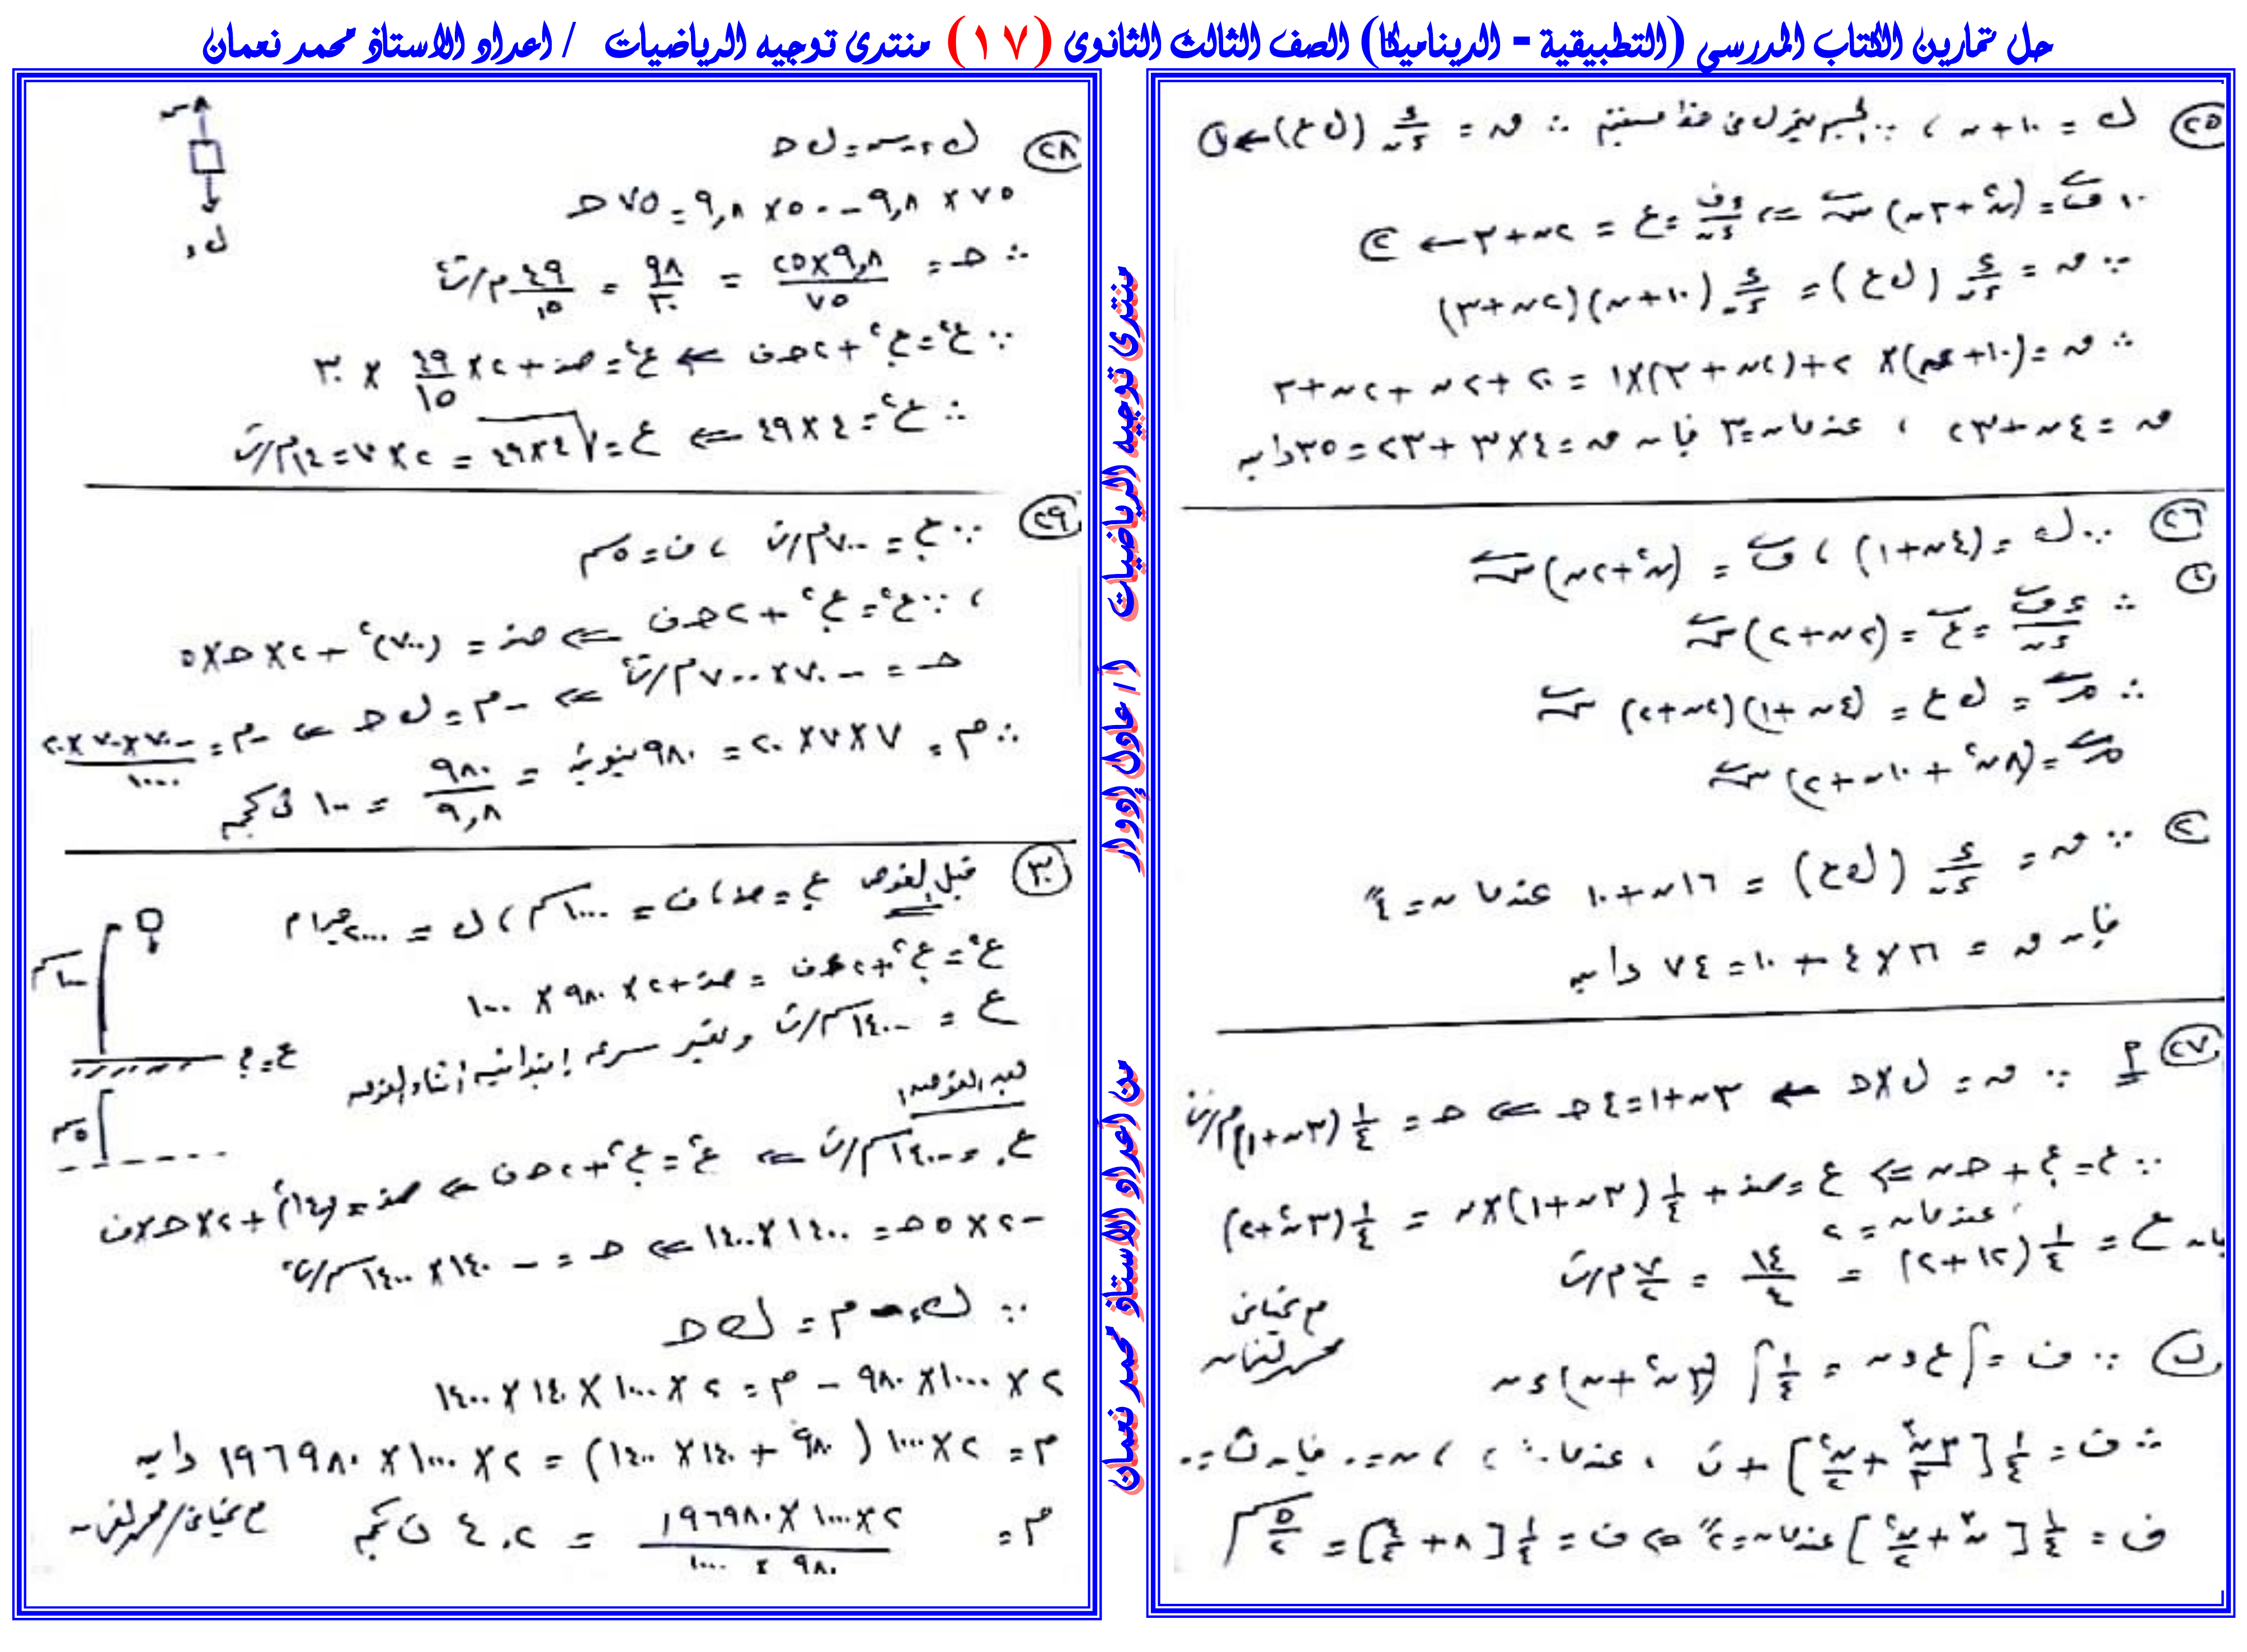 حل تمارين الكتاب المدرسي (التطبيقية - الديناميكا) الصف الثالث الثانوى (١٧) منتدى توجيه الرياضيات / اعداد الاستاذ محمد نعمان
٢٥ ك = ١٠ + ن ، ∵ الجسم يتحرك فى خط مستقيم ∴ ق = د/دن (ك ع) ← ١
ف = (ن² + ٣ن) س ⇐ دف/دن = ع = ٢ن + ٣ ← ٢
∵ ق = د/دن (ك ع) = د/دن (١٠ + ن)(٢ن + ٣)
∴ ق = (١٠ + ن) × ٢ + (٢ن + ٣) × ١ = ٢٠ + ٢ن + ٢ن + ٣
ق = ٤ن + ٢٣ ، عندما ن = ٣ فإن ق = ٤ × ٣ + ٢٣ = ٣٥ داين
٢٦ ∵ ك = (٤ن + ١) ، ف = (ن² + ٢ن) س
١ ∴ دف/دن = ع = (٢ن + ٢) س
∴ م = ك ع = (٤ن + ١)(٢ن + ٢) س
م = (٨ن² + ١٠ن + ٢) س
٢ ∵ ق = د/دن (ك ع) = ١٦ن + ١٠ عندما ن = ٤
فإن ق = ١٦ × ٤ + ١٠ = ٧٤ داين
٢٧ أ ∵ ق = ك × حـ ⇐ ٣ن + ١ = ٤ حـ ⇐ حـ = ١/٤ (٣ن + ١) م/ث²
∵ ع = ع. + حـ ن ⇐ ع = صفر + ١/٤ (٣ن + ١) × ن = ١/٤ (٣ن² + ٢)
عندما ن = ٢
فإن ع = ١/٤ (١٢ + ٢) = ١٤/٤ = ٧/٢ م/ث
ب ∵ ف = ∫ ع دن = ١/٤ ∫ (٣ن² + ن) دن
م تحياتى
محمد نعمان
∴ ف = ١/٤ [٣ن³/٣ + ن²/٢] + ث ، عندما ف = ٠ ، ن = ٠ فإن ث = ٠
ف = ١/٤ [ن³ + ن²/٢] عندما ن = ٢ ⇐ ف = ١/٤ [٨ + ٤/٢] = ٥/٢ م
٢٨ ك د - س = ك حـ
٧٥ × ٩,٨ - ٥٠ × ٩,٨ = ٧٥ حـ
∴ حـ = ٩,٨ × ٢٥ / ٧٥ = ٩٨/٣٠ = ٤٩/١٥ م/ث²
∵ ع² = ع.² + ٢ حـ ف ⇐ ع² = صفر + ٢ × ٤٩/١٥ × ٣٠
∴ ع² = ٤ × ٤٩ ⇐ ع = √٤ × ٤٩ = ٢ × ٧ = ١٤ م/ث
٢٩ ∵ ع. = ٧٠٠ م/ث ، ف = ٥ سم
، ∵ ع² = ع.² + ٢ حـ ف ⇐ صفر = (٧٠٠)² + ٢ × حـ × ٥
حـ = - ٧٠ × ٧٠٠ م/ث² ⇐ - م = ك حـ ⇐ - م = - ٧٠ × ٧٠٠ × ٢٠ / ١٠٠٠
∴ م = ٧ × ٧ × ٢٠ = ٩٨٠ نيوتن = ٩٨٠/٩,٨ = ١٠٠ ث كجم
٣٠ قبل الغوص ع. = صفر ، ف = ١٠٠٠ سم ، ك = ٢٠٠٠ جرام
ع² = ع.² + ٢ د ف = صفر + ٢ × ٩٨٠ × ١٠٠٠
ع = ١٤٠٠ سم/ث وتعتبر سرعه ابتدائيه أثناء الغوص
بعد الغوص
ع. = ١٤٠٠ سم/ث ⇐ ع² = ع.² + ٢ حـ ف ⇐ صفر = (١٤٠٠)² + ٢ × حـ × ف
- ٢ × ٥ حـ = ١٤٠٠ × ١٤٠٠ ⇐ حـ = - ١٤٠ × ١٤٠٠ سم/ث²
∵ ك د - م = ك حـ
٢ × ١٠٠٠ × ٩٨٠ - م = ٢ × ١٠٠٠ × ١٤٠ × ١٤٠٠
م = ٢ × ١٠٠٠ (٩٨٠ + ١٤٠ × ١٤٠٠) = ٢ × ١٠٠٠ × ١٩٦٩٨٠ داين
م = ٢ × ١٠٠٠ × ١٩٦٩٨٠ / ٩٨٠ × ١٠٠٠ = ٤٠٢ ث كجم
م تحياتى / محمد نعمان
منتدى توجيه الرياضيات أ / عادل إدوار
من أعداد الاستاذ محمد نعمان